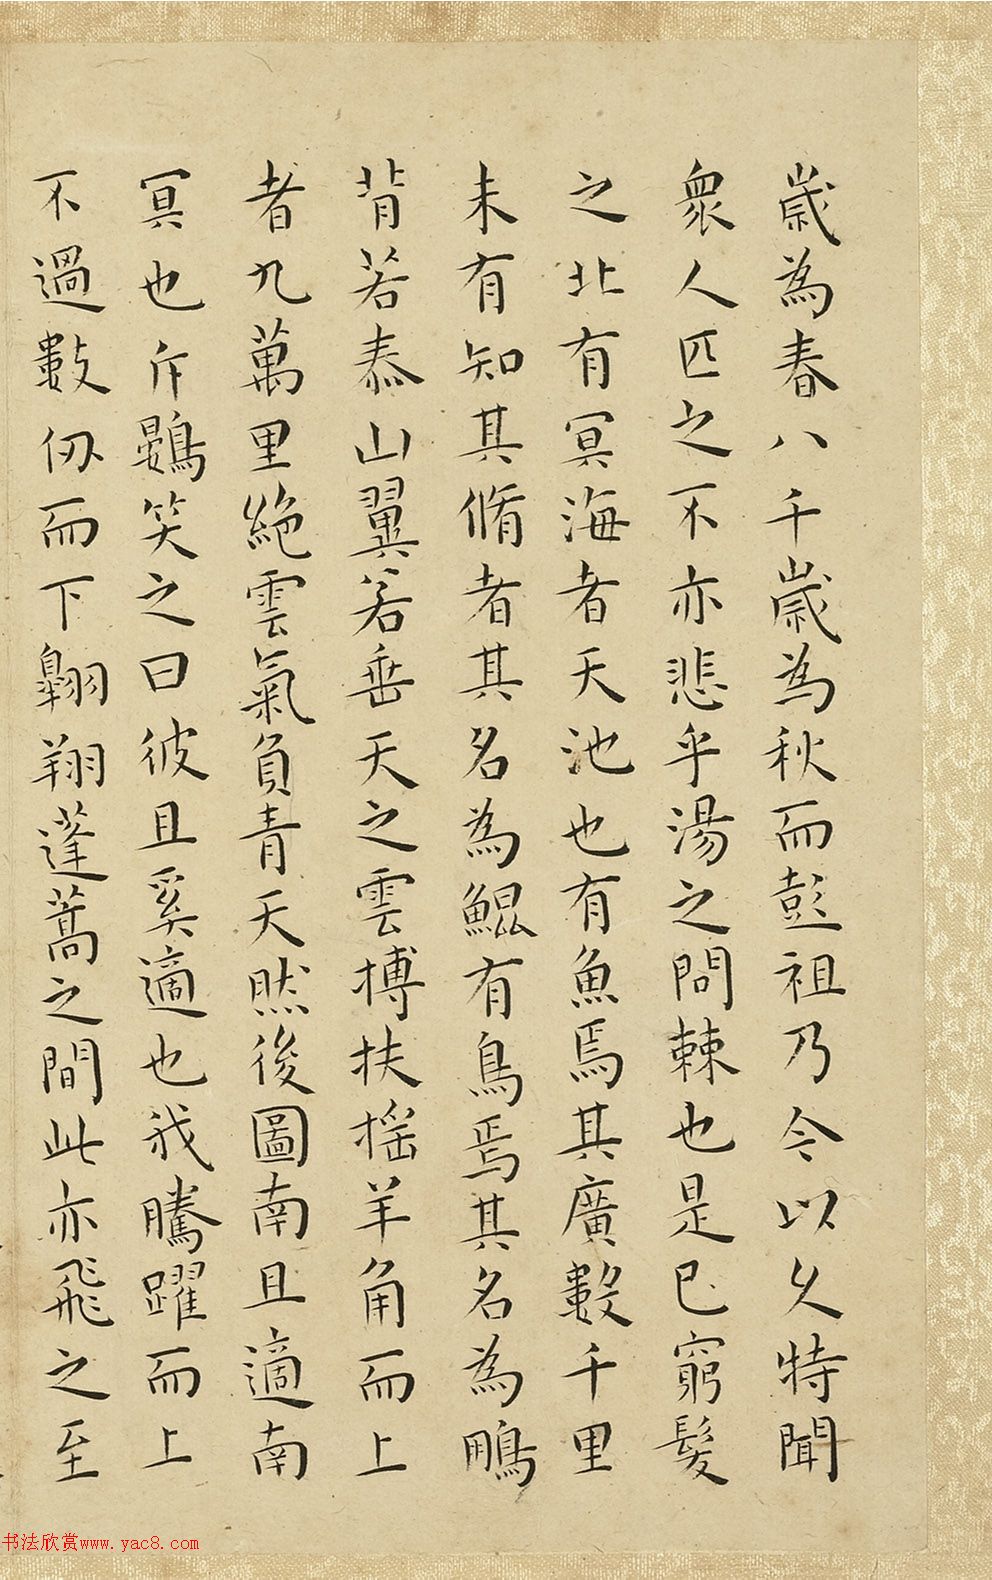 歲為春八千歲為秋而彭祖乃今以久特聞
衆人匹之不亦悲乎湯之問棘也是已窮髮
之北有冥海者天池也有魚焉其廣數千里
未有知其脩者其名為鯤有鳥焉其名為鵬
背若泰山翼若垂天之雲搏扶搖羊角而上
者九萬里絕雲氣負青天然後圖南且適南
冥也斥鷃笑之曰彼且奚適也我騰躍而上
不過數仞而下翱翔蓬蒿之間此亦飛之至
书法欣赏www.yac8.com